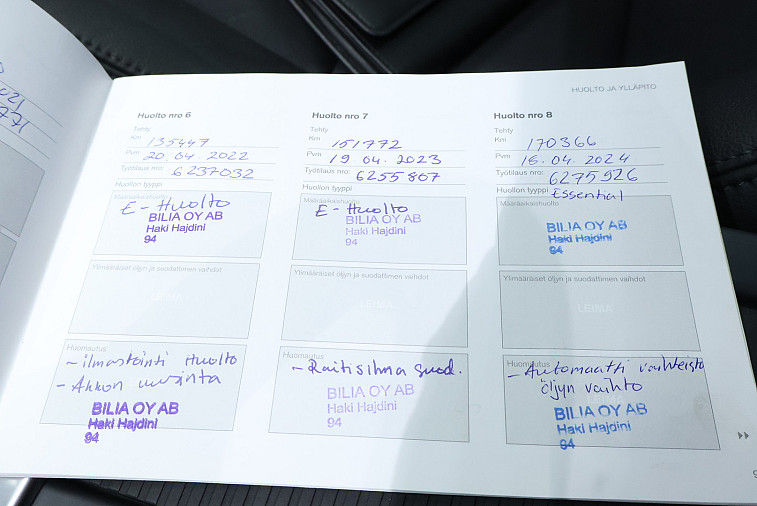 021
771
HUOLTO JA YLLÄPITO
Huolto nro 6
Tehty
Km 135447
Pvm 20 04. 2022
Työtilaus nro: 6237032
Huollon tyyppi
Määräaikaishuolto
E - Huolto
BILIA OY AB
Haki Hajdini
94
Ylimääräiset öljyn ja suodattimen vaihdot
LEIMA
Huomautus
- ilmastointi Huolto
- Akkon uusinta
BILIA OY AB
Haki Hajdini
94
Huolto nro 7
Tehty
Km 151772
Pvm 19.04. 2023
Työtilaus nro: 6255807
Huollon tyyppi
Määräaikaishuolto
E - Huolto
BILIA OY AB
Haki Hajdini
94
Ylimääräiset öljyn ja suodattimen vaihdot
LEIMA
Huomautus
- Raitisilma suod.
BILIA OY AB
Haki Hajdini
94
Huolto nro 8
Tehty
Km 170366
Pvm 16.04. 2024
Työtilaus nro: 6275926
Huollon tyyppi Essential
Määräaikaishuolto
BILIA OY AB
Haki Hajdini
94
Ylimääräiset öljyn ja suodattimen vaihdot
LEIMA
Huomautus
- Automaatti vaihteisto
öljyn vaihto
BILIA OY AB
Haki Hajdini
94